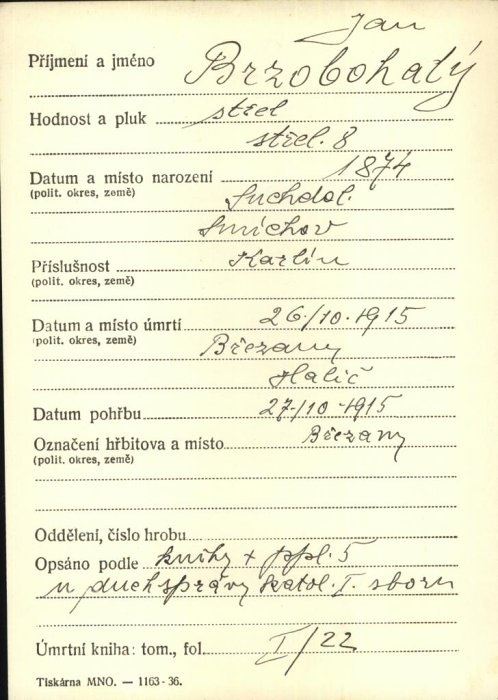 Jan
Příjmení a jméno Brzobohatý
Hodnost a pluk střel
střel. 8
Datum a místo narození 1874
(polit. okres, země) Suchdol.
Smíchov
Příslušnost Karlín
(polit. okres, země)
Datum a místo úmrtí 26/10·1915
(polit. okres, země) Březany
Halič
Datum pohřbu 27/10·1915
Označení hřbitova a místo Březany
(polit. okres, země)
Oddělení, číslo hrobu
Opsáno podle knihy + ppl. 5
n duchsprávy katol. I. sboru
Úmrtní kniha: tom., fol. I/22
Tiskárna MNO. — 1163-36.